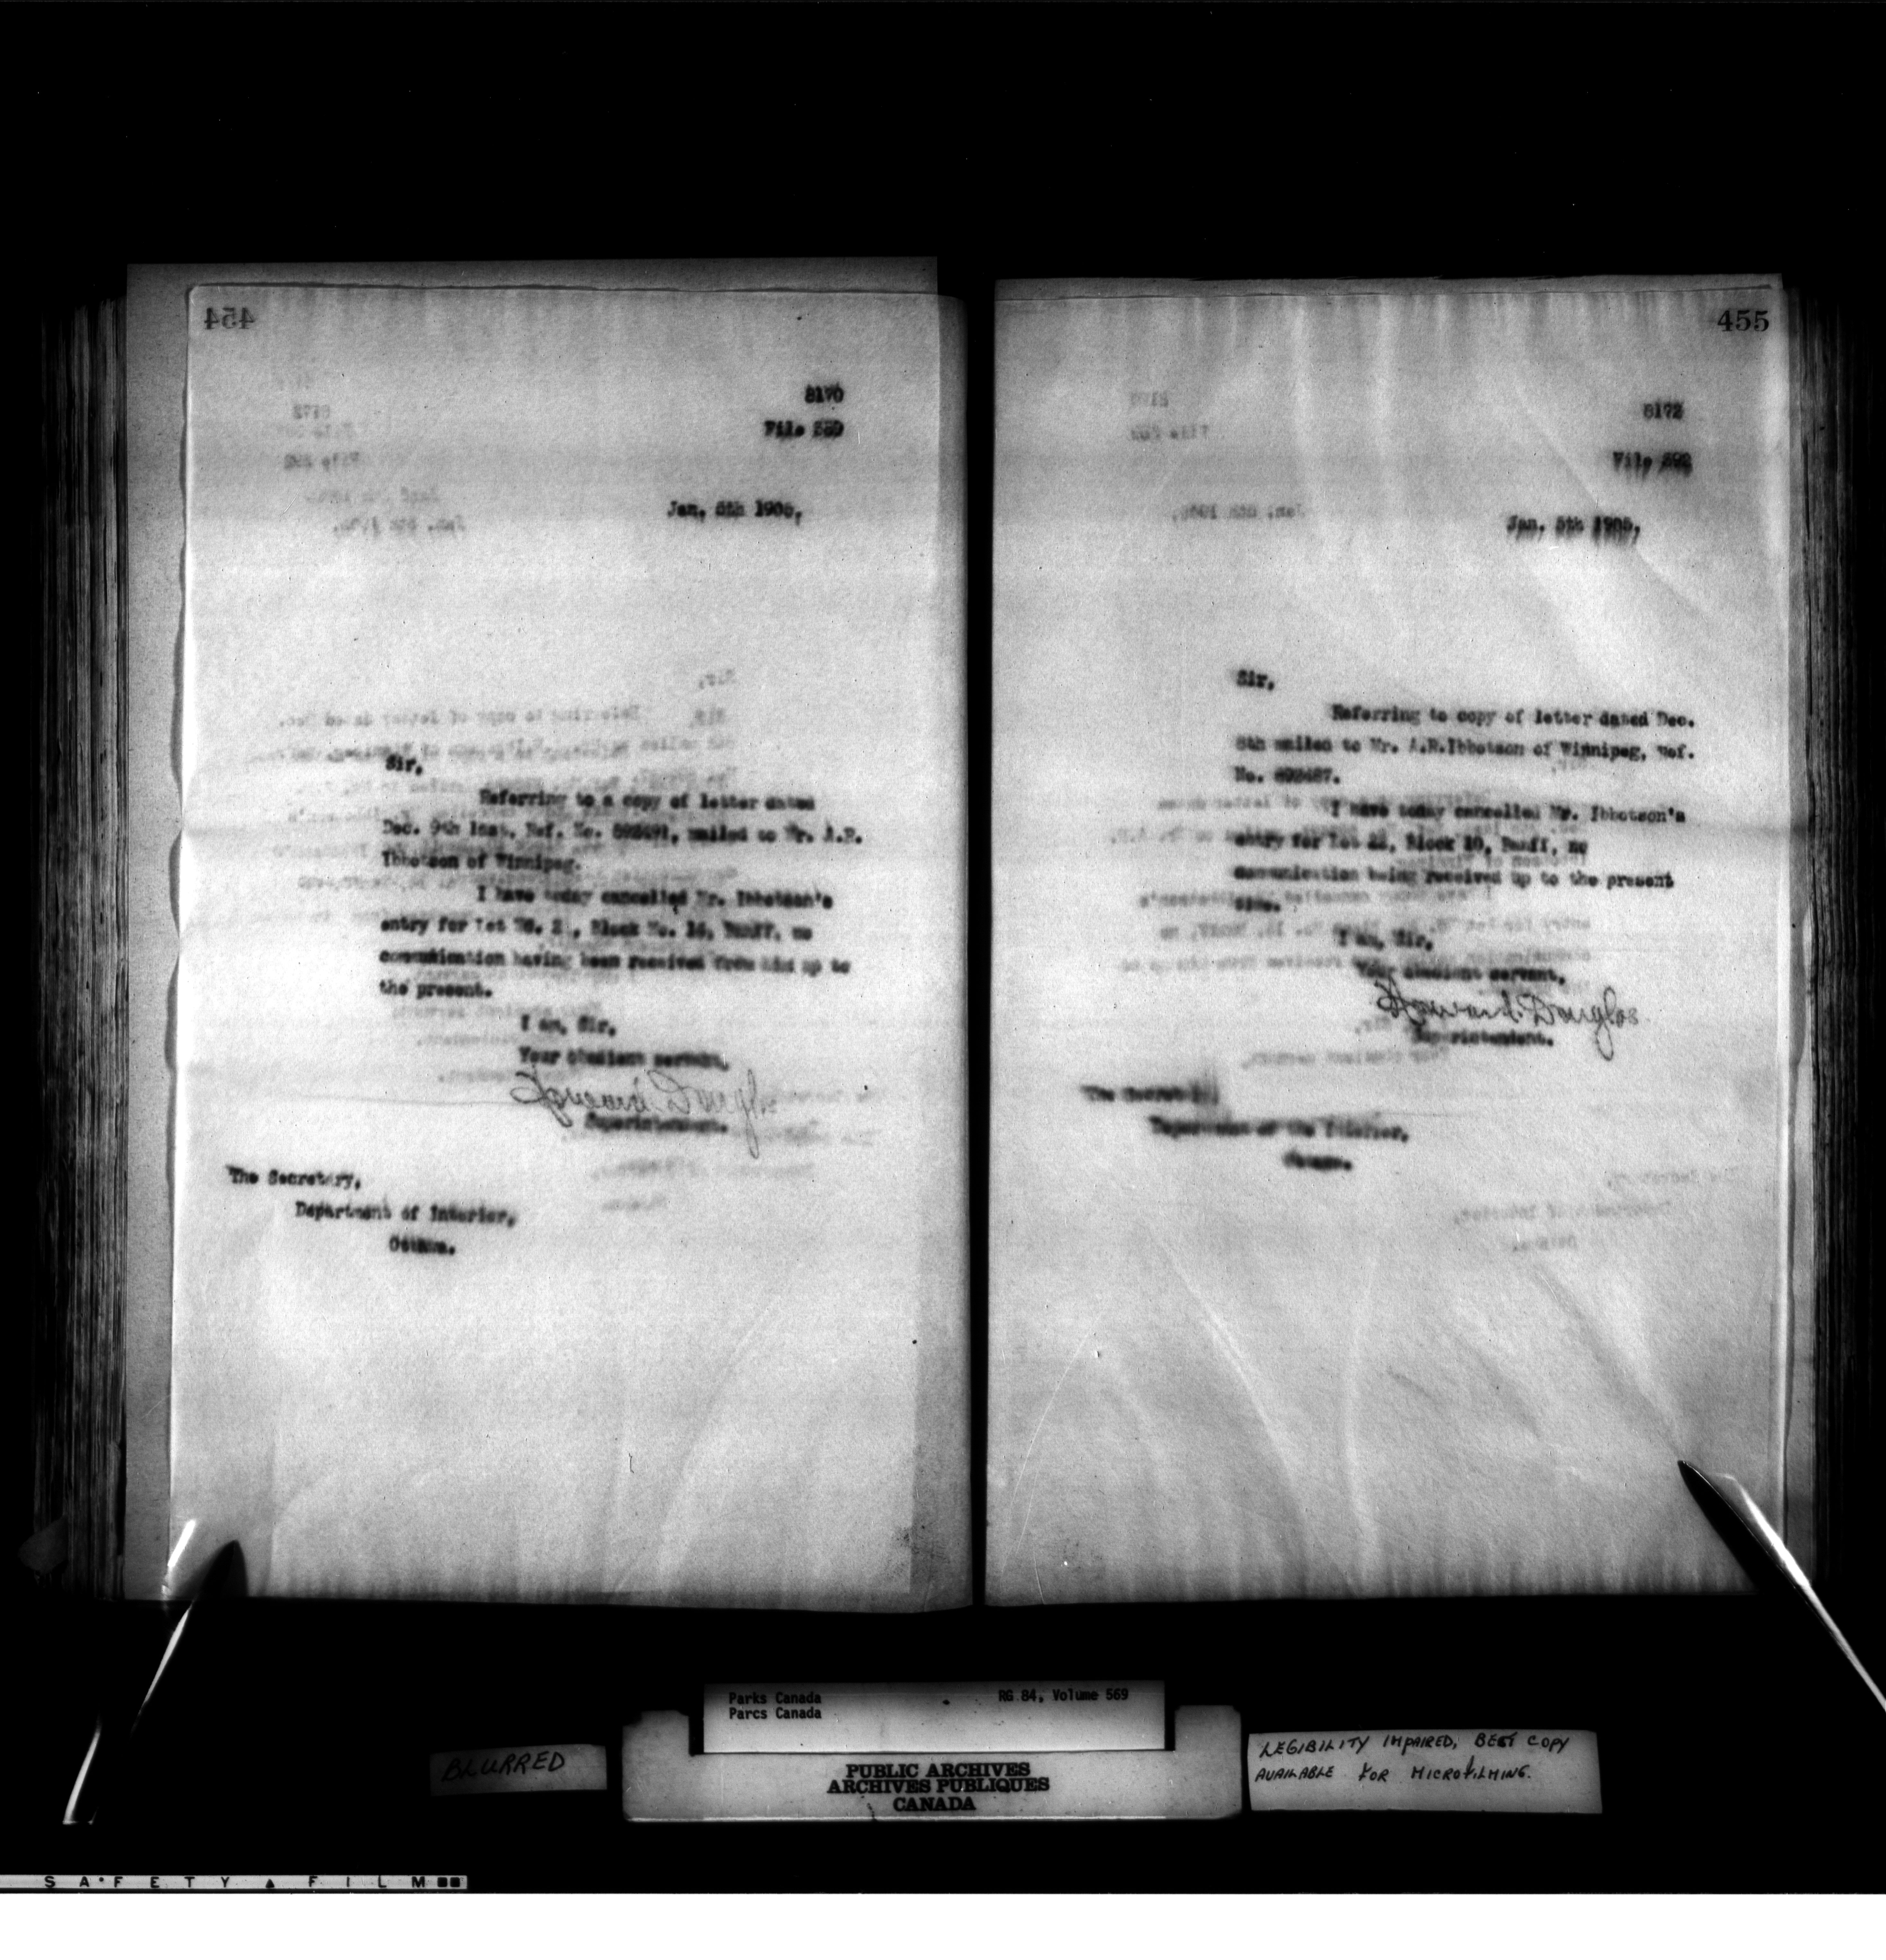 454
8170
File
Jan. 5th 1905,
Sir,
Referring to a copy of letter dated
Dec. 9th Inst. Ref. No. mailed to Mr. A.R.
Ibbotson of Winnipeg.
I have today cancelled Mr. Ibbotson's
entry for Lot No. Block No. Banff, no
communication having been received from him up to
the present.
I am, Sir,
Your obedient servant,
Howard Douglas
Superintendent.
The Secretary,
Department of Interior,
Ottawa.
455
8172
File
Jan. 5th 1905,
Sir,
Referring to copy of letter dated Dec.
mailed to Mr. A.R.Ibbotson of Winnipeg, Ref.
No.
I have today cancelled Mr. Ibbotson's
entry for Lot Block Banff, no
communication being received up to the present
time.
I am, Sir,
Your obedient servant,
Howard Douglas
Superintendent.
The Secretary,
Department of the Interior,
Ottawa.
Parks Canada RG 84, Volume 569
Parcs Canada
BLURRED
PUBLIC ARCHIVES
ARCHIVES PUBLIQUES
CANADA
LEGIBILITY IMPAIRED, BEST COPY
AVAILABLE FOR MICROFILMING.
SAFETY FILM